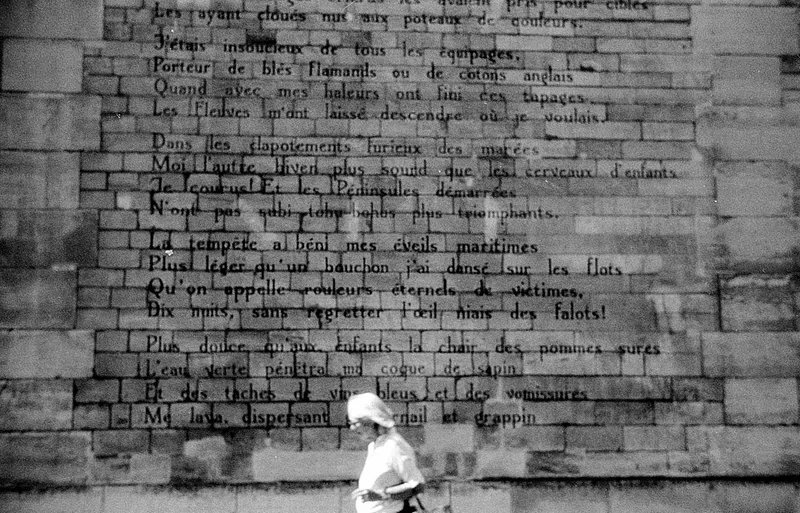 les avaient pris pour cibles
Les ayant cloués nus aux poteaux de couleurs.
J'étais insoucieux de tous les équipages,
Porteur de blés flamands ou de cotons anglais
Quand avec mes haleurs ont fini ces tapages
Les Fleuves m'ont laissé descendre où je voulais.
Dans les clapotements furieux des marées
Moi l'autre hiver plus sourd que les cerveaux d'enfants
Je courus! Et les Péninsules démarrées
N'ont pas subi tohu-bohus plus triomphants.
La tempête a béni mes éveils maritimes
Plus léger qu'un bouchon j'ai dansé sur les flots
Qu'on appelle rouleurs éternels de victimes,
Dix nuits, sans regretter l'œil niais des falots!
Plus douce qu'aux enfants la chair des pommes sures
L'eau verte pénétra ma coque de sapin
Et des taches de vins bleus et des vomissures
Me lava, dispersant ernail et grappin